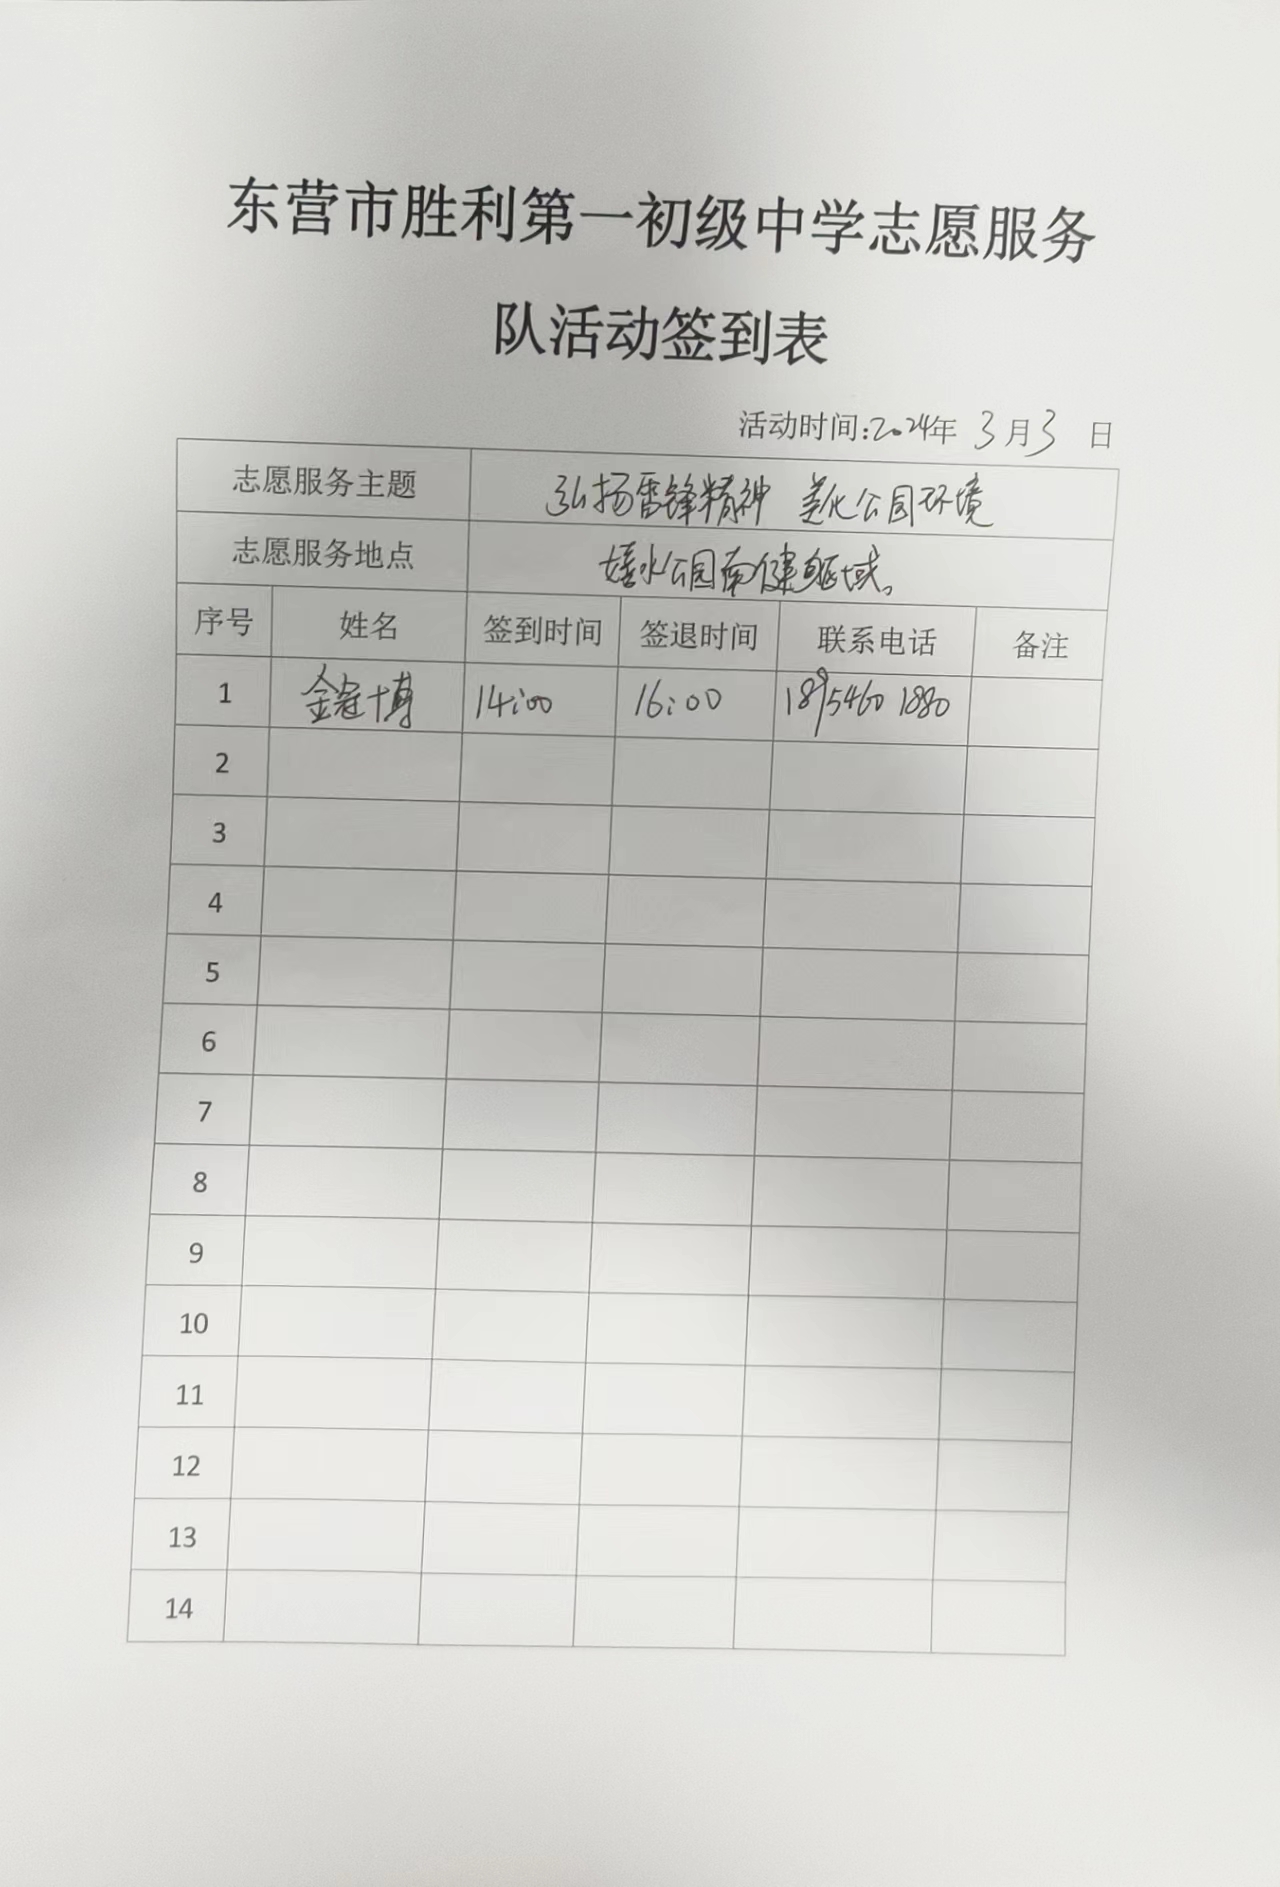 东营市胜利第一初级中学志愿服务
队活动签到表
活动时间:2024年 3月3 日
志愿服务主题 弘扬雷锋精神 美化公园环境
志愿服务地点 嬉水公园南健身区域。
序号 姓名 签到时间 签退时间 联系电话 备注
1 金冠博 14:00 16:00 18954601880
2
3
4
5
6
7
8
9
10
11
12
13
14